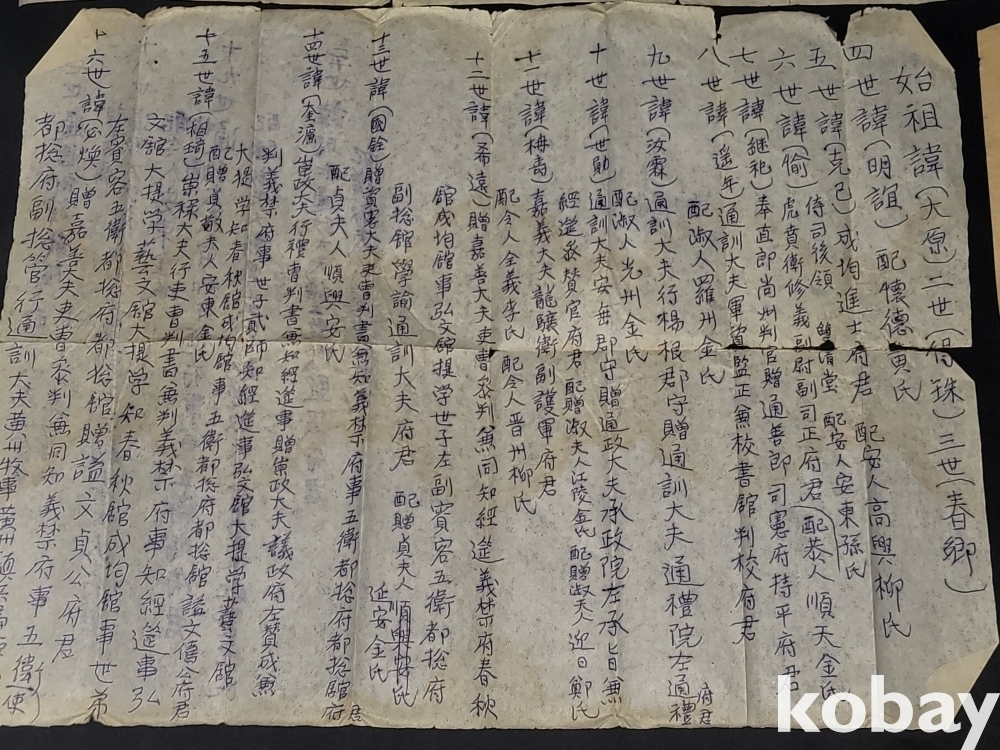 始祖諱(大原)二世(得珠)三世(春卿)
四世諱(明誼) 配懷德黃氏
五世諱(克己)成均進士府君 配安人高興柳氏
侍司後領 清堂 配安人安東孫氏
六世諱(偷)虎賁衛修義副尉副司正府君 配恭人順天金氏
七世諱(継祀)奉直郎尚州判官贈通善郎司憲府持平府君
八世諱(遥年)通訓大夫軍資監正兼校書館判校府君
配淑人羅州金氏
九世諱(汝霖)通訓大夫行楊根郡守贈通訓大夫通禮院左通禮府君
配淑人光州金氏
十世諱(世勛)通訓大夫安岳郡守贈通政大夫承政院左承旨兼
經筵參贊官府君 配贈淑夫人江陵金氏 配贈淑夫人迎日鄭氏
十一世諱(梅壽)嘉義大夫龍驤衛副護軍府君
配令人全義李氏 配令人晋州柳氏
十二世諱(希遠)贈嘉善大夫吏曹參判兼同知經筵義禁府春秋
館成均館事弘文館提学世子左副賓客五衛都捴府
副捴管 學諭通訓大夫府君 配贈貞夫人順興安氏
延安金氏
十三世諱(國銓)贈資憲大夫吏曹判書兼知義禁府事五衛都捴府都捴管府君
配貞夫人順興安氏
十四世諱(奎濂)崇政大夫行禮曹判書兼知經筵事贈崇政大夫議政府左贊成兼
判義禁府事世子貳師知經筵事弘文館大提学藝文館
大提学知春秋館成均館事五衛都捴府都捴管謚文僖公府君
配贈貞敬夫人安東金氏
十五世諱(相琦)崇祿大夫行吏曹判書兼判義禁府事知經筵事弘
文館大提学藝文館大提学知春秋館成均館事世弟
左賓客五衛都捴府都捴管贈謚文貞公府君
十六世諱(必煥)贈嘉善大夫吏曹參判兼同知義禁府事五衛
都捴府副捴管行通訓大夫黃州牧事黃州鎮
kobay